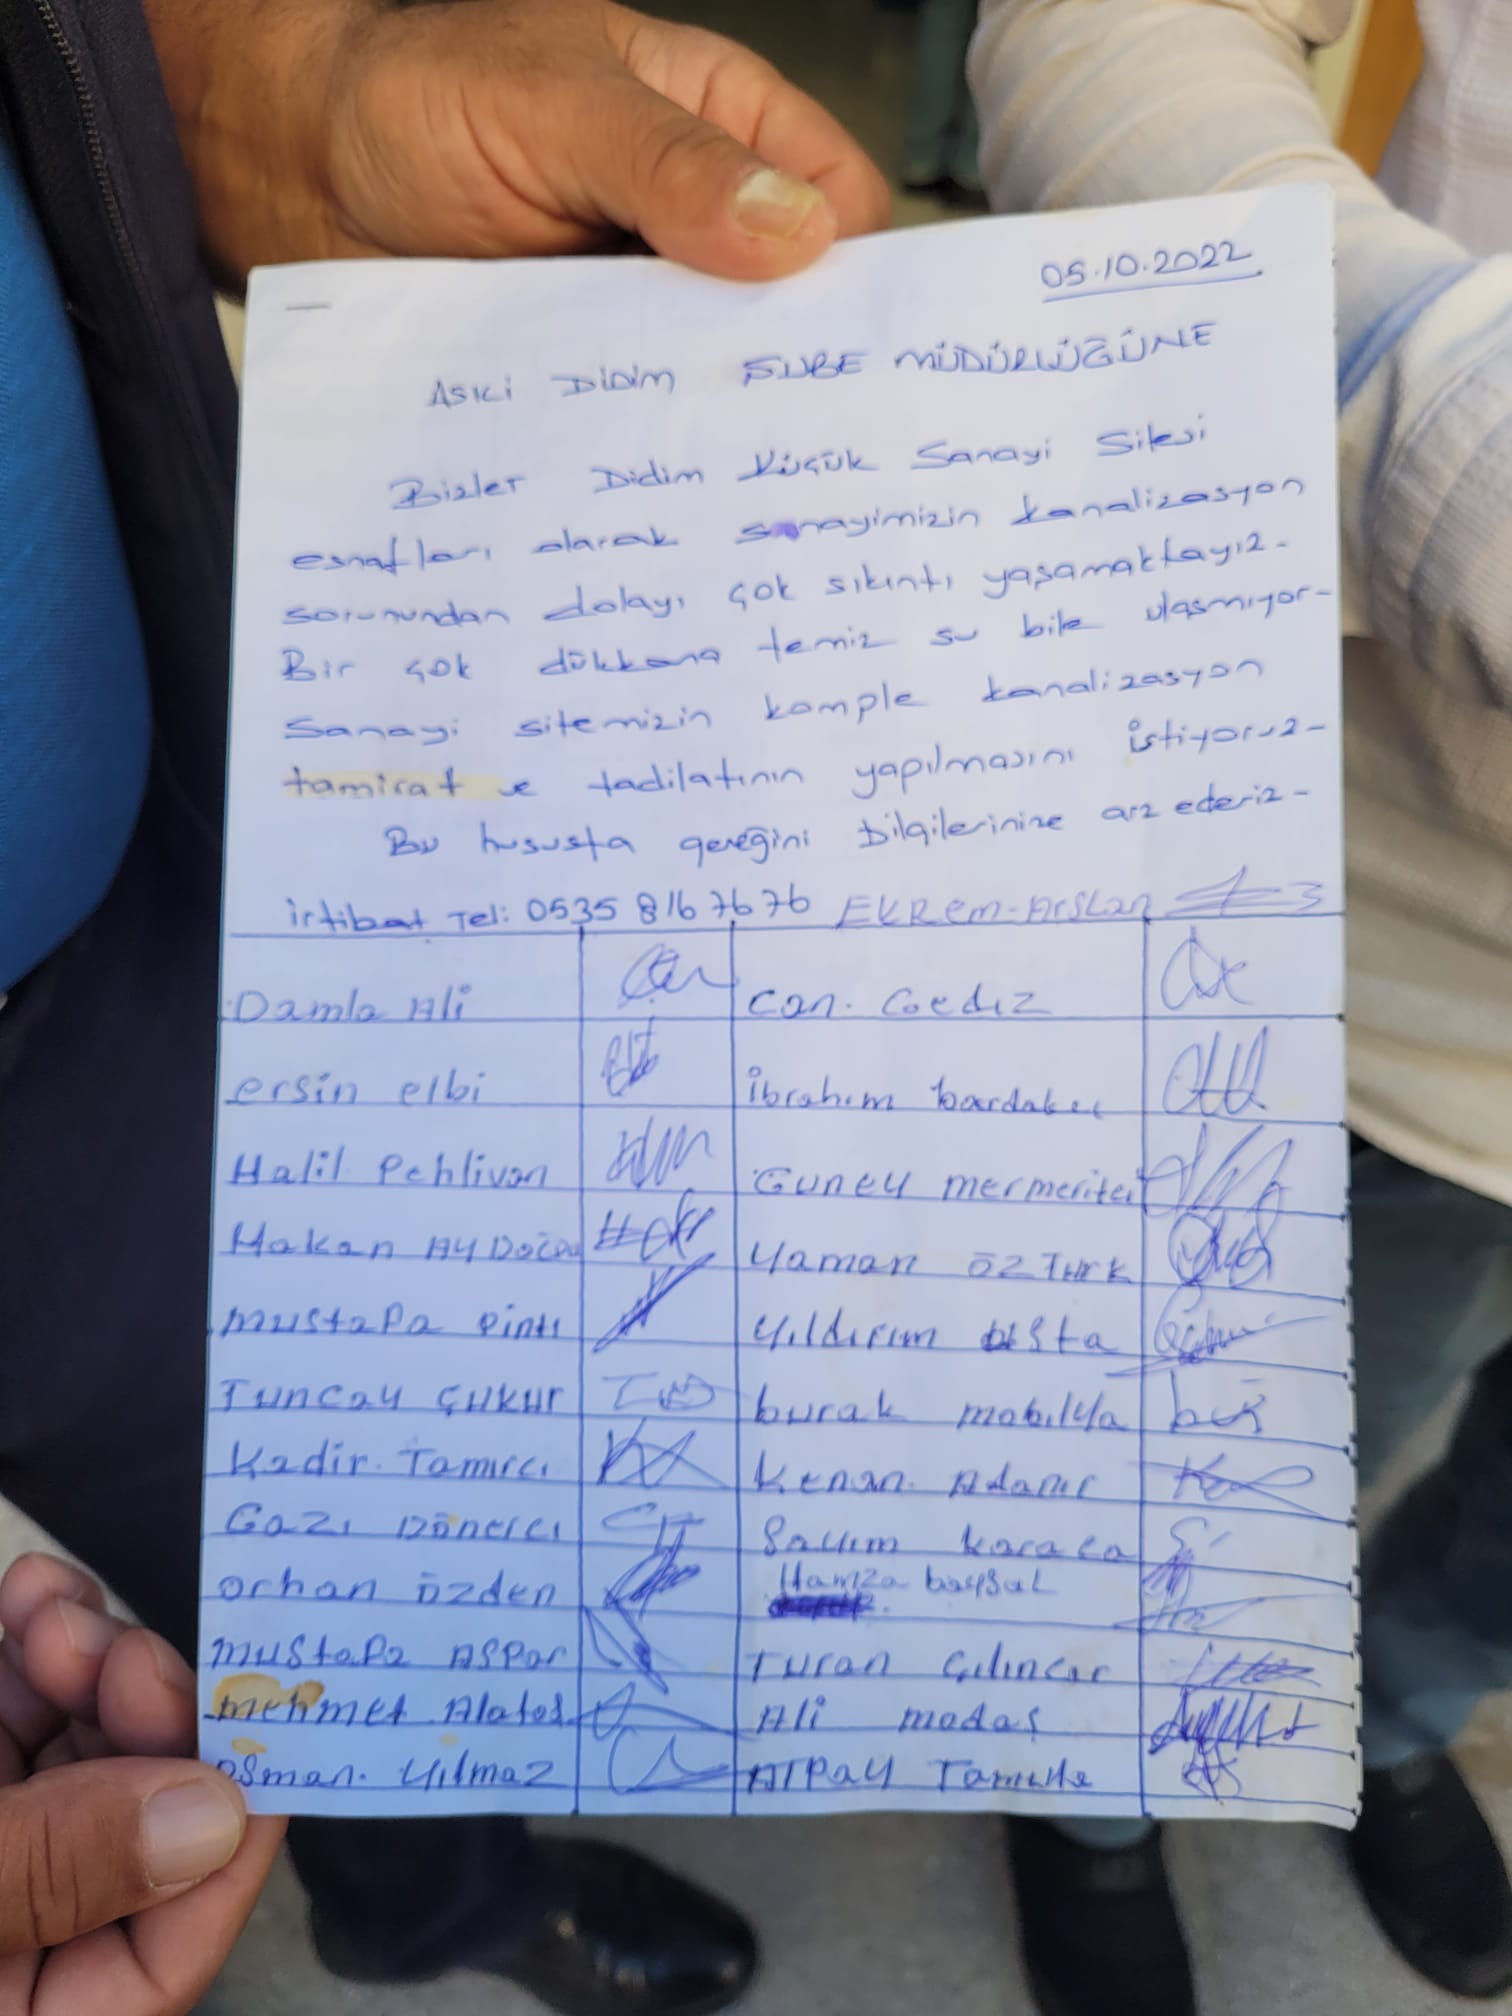 05.10.2022
ASKİ DİDİM ŞUBE MÜDÜRLÜĞÜNE
Bizler Didim Küçük Sanayi Sitesi
esnafları olarak sanayimizin kanalizasyon
sorunundan dolayı çok sıkıntı yaşamaktayız.
Bir çok dükkana temiz su bile ulaşmıyor.
Sanayi sitemizin komple kanalizasyon
tamirat ve tadilatının yapılmasını istiyoruz.
Bu hususta gereğini bilgilerinize arz ederiz.
irtibat Tel: 0535 816 76 76 EKREM-Arslan
Damla Ali Can. Gediz
ersin elbi İbrahim bardakcı
Halil Pehlivan Guney
Hakan AYDOĞDU Yaman ÖZTURK
Mustafa Yıldırım usta
Tuncay ÇUKUR burak mobilya
Kadir. Tamırcı Kenan.
Gazı Dönercı Salım karaca
orhan özden Hamza baysal
Mustafa ASPar Turan
mehmet Ali
osman. Yılmaz